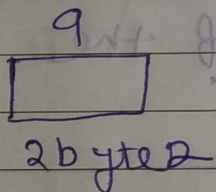 9
2bytes